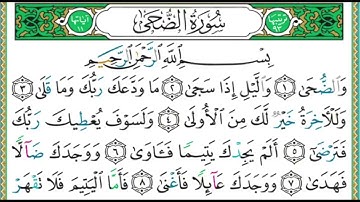 سُورَةُ الضُّحَى
بِسْمِ اللَّهِ الرَّحْمَٰنِ الرَّحِيمِ
وَالضُّحَى ۝١ وَالَّيْلِ إِذَا سَجَى ۝٢ مَا وَدَّعَكَ رَبُّكَ وَمَا قَلَى ۝٣
وَلَلْآخِرَةُ خَيْرٌ لَّكَ مِنَ الْأُولَى ۝٤ وَلَسَوْفَ يُعْطِيكَ رَبُّكَ
فَتَرْضَى ۝٥ أَلَمْ يَجِدْكَ يَتِيمًا فَـَٔاوَى ۝٦ وَوَجَدَكَ ضَآلًّا
فَهَدَى ۝٧ وَوَجَدَكَ عَآئِلًا فَأَغْنَى ۝٨ فَأَمَّا الْيَتِيمَ فَلَا تَقْهَرْ